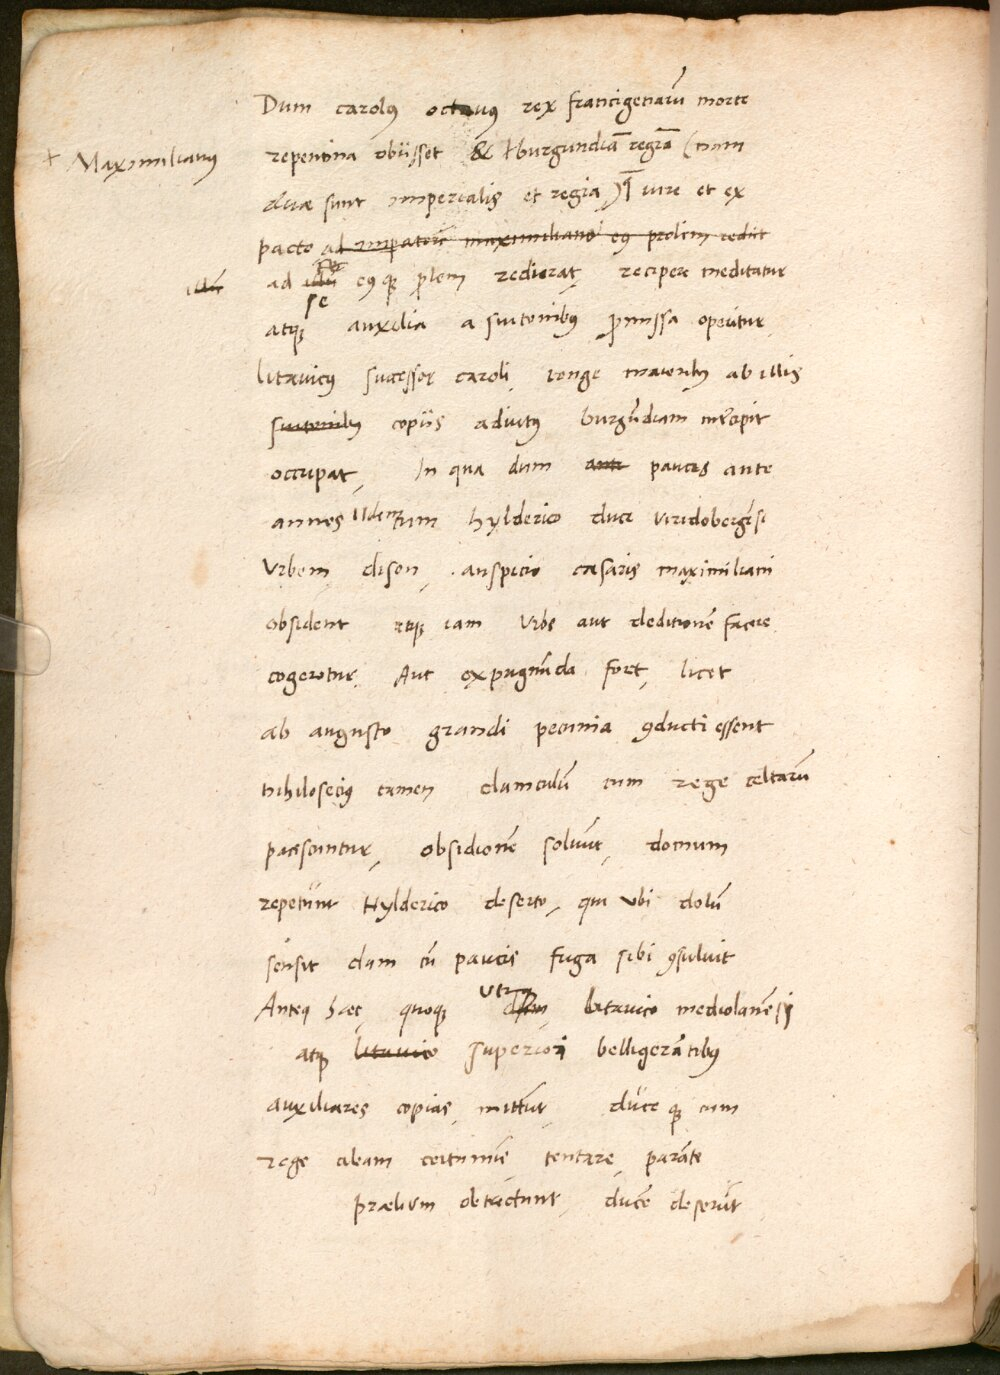 Dum carolus octavus rex francigenarū morte
+ Maximilianus
repentina obiisset & + burgundiā regiā (nam
duæ sunt imperialis et regia) q̄ iure et ex
pacto ad imperatorē maximilianū eius prolem rediit
illū
ad se eiusque prolem redierat, recipere meditatur
atque auxilia a suitonibus promissa operitur
litavicus successor caroli, longe maioribus ab illis
suitonibus copiis adiutus burgūdiam intercipit
occupat, In qua dum ante paucis ante
annos iidem cum hylderico duce viridobergēsi
Vrbem, disen, auspicio cæsaris maximiliani
obsident atque iam Vrbs aut deditionē facere
cogeretur, Aut expugnāda foret, licet
ab augusto grandi pecunia conducti essent
nihilosecius tamen clamculū cum rege celtarū
paciscuntur, obsidionē solvūt, domum
repetunt Hylderico deserto, qui ubi dolū
sensit clam cū paucis fuga sibi consuluit
Anteque hæc quoque utrique litavico mediolanēsi
atque litavico superiori belligerātibus
auxiliares copias, mittūt, duce que cum
rege etiam certamē tentare, parāte
prælium detractant, ducē deserūt